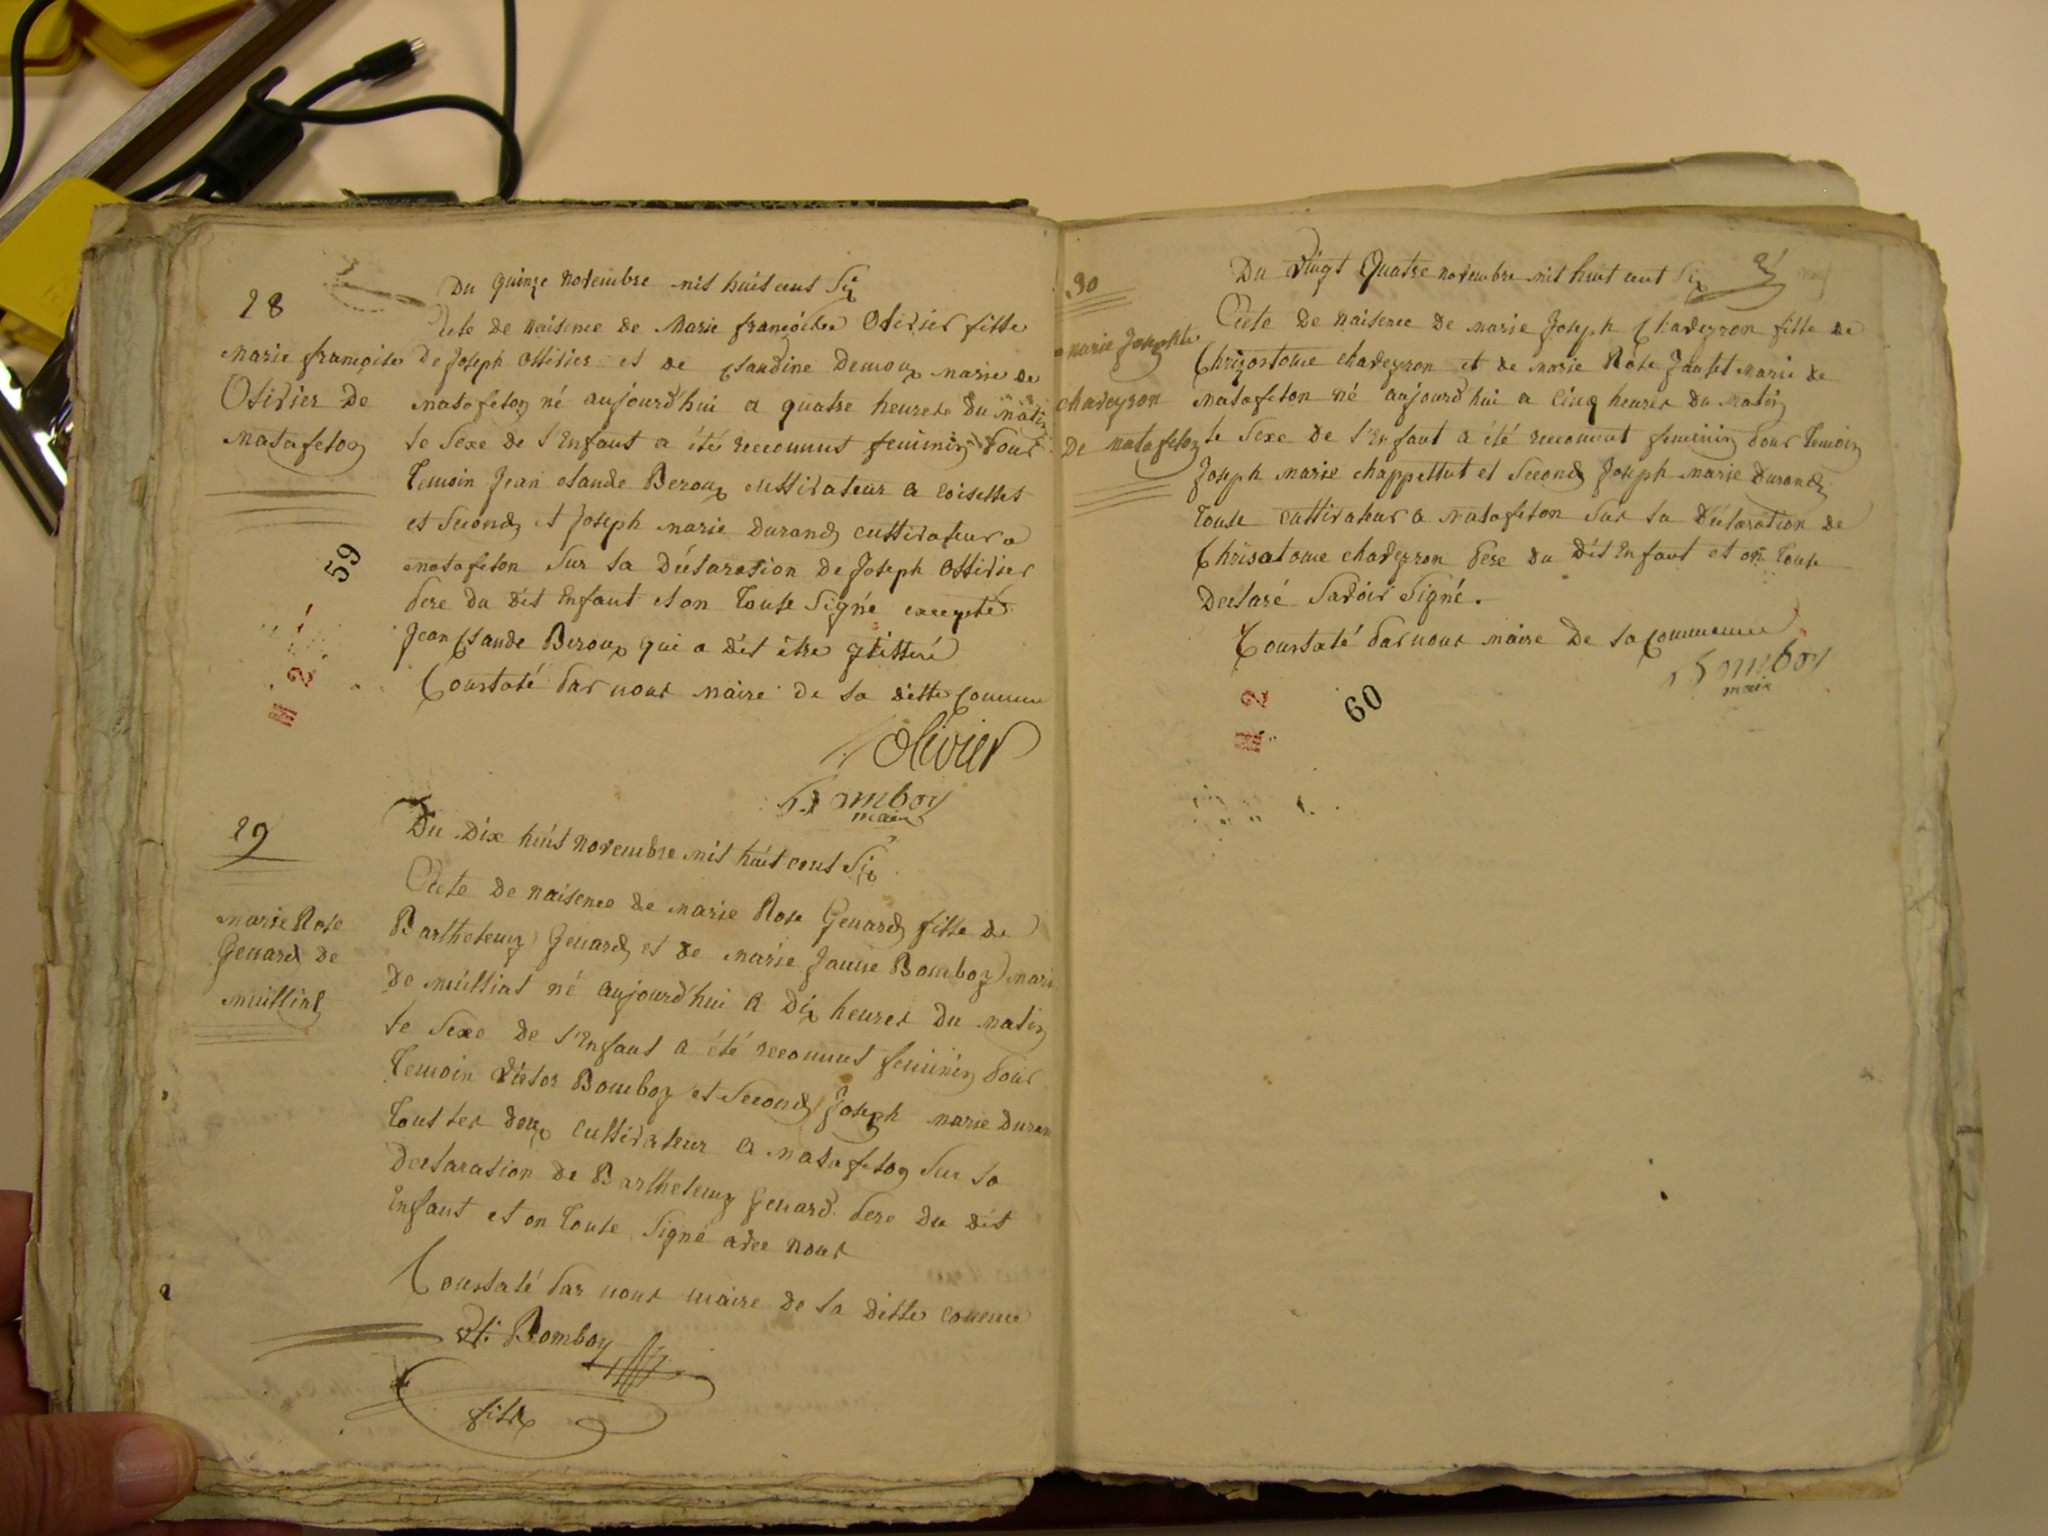 28
Marie françoise
Olivier De
Matafelon
Du quinze novembre mil huit cent Six
Acte de naisence de Marie françoise Olivier fille
de Joseph Ollivier et de Claudine Demoux marié de
Matafelon né aujourd'hui a quatre heures du Matin
le Sexe de l'Enfant a été reconnut feminin pour
temoin Jean Claude Beroux cultivateur a Coiselles
et Second et Joseph marie Durand cultivateur a
matafelon Sur la Déclaration de Joseph Ollivier
pere du dit Enfant et on touse Signé excepté
Jean Claude Beroux qui a dit être illitteré
Constaté par nous Maire de la ditte Commune
Olivier
Bomboy
maire
59
2
29
Marie Rose
Genard de
Du Dix huit novembre mil huit cent Six
Acte de naisence de Marie Rose Genard fille de
Barthelemy Genard et de Marie Janne Bomboy Marié
de né aujourd'hui a Dix heures du Matin
le Sexe de l'Enfant a été reconnut feminin pour
temoin Victor Bomboy et Second Joseph Marie Duran
tous les deux cultivateur a Matafelon Sur la
Declaration de Barthelemy Genard pere du dit
Enfant et on touse Signé avec nous
Constaté par nous maire de la ditte comune
Bomboy
fils
30
Marie Josephte
Chaveyron
De matafelon
Du Vingt Quatre novembre mil huit cent Six
Acte de naisence de Marie Joseph Chaveyron fille de
Chrizostome chaveyron et de Marie Rose Marié de
Matafelon né aujourd'hui a Cinq heures du Matin
le Sexe de l'Enfant a été reconnut feminin pour temoin
Joseph Marie et Second Joseph Marie Durand
touse cultivateur a Matafelon Sur la Déclaration de
Chrisatome chaveyron pere du dit Enfant et on touse
Declaré Savoir Signé.
Constaté par nous Maire de la Commune
Bomboy
maire
2
60